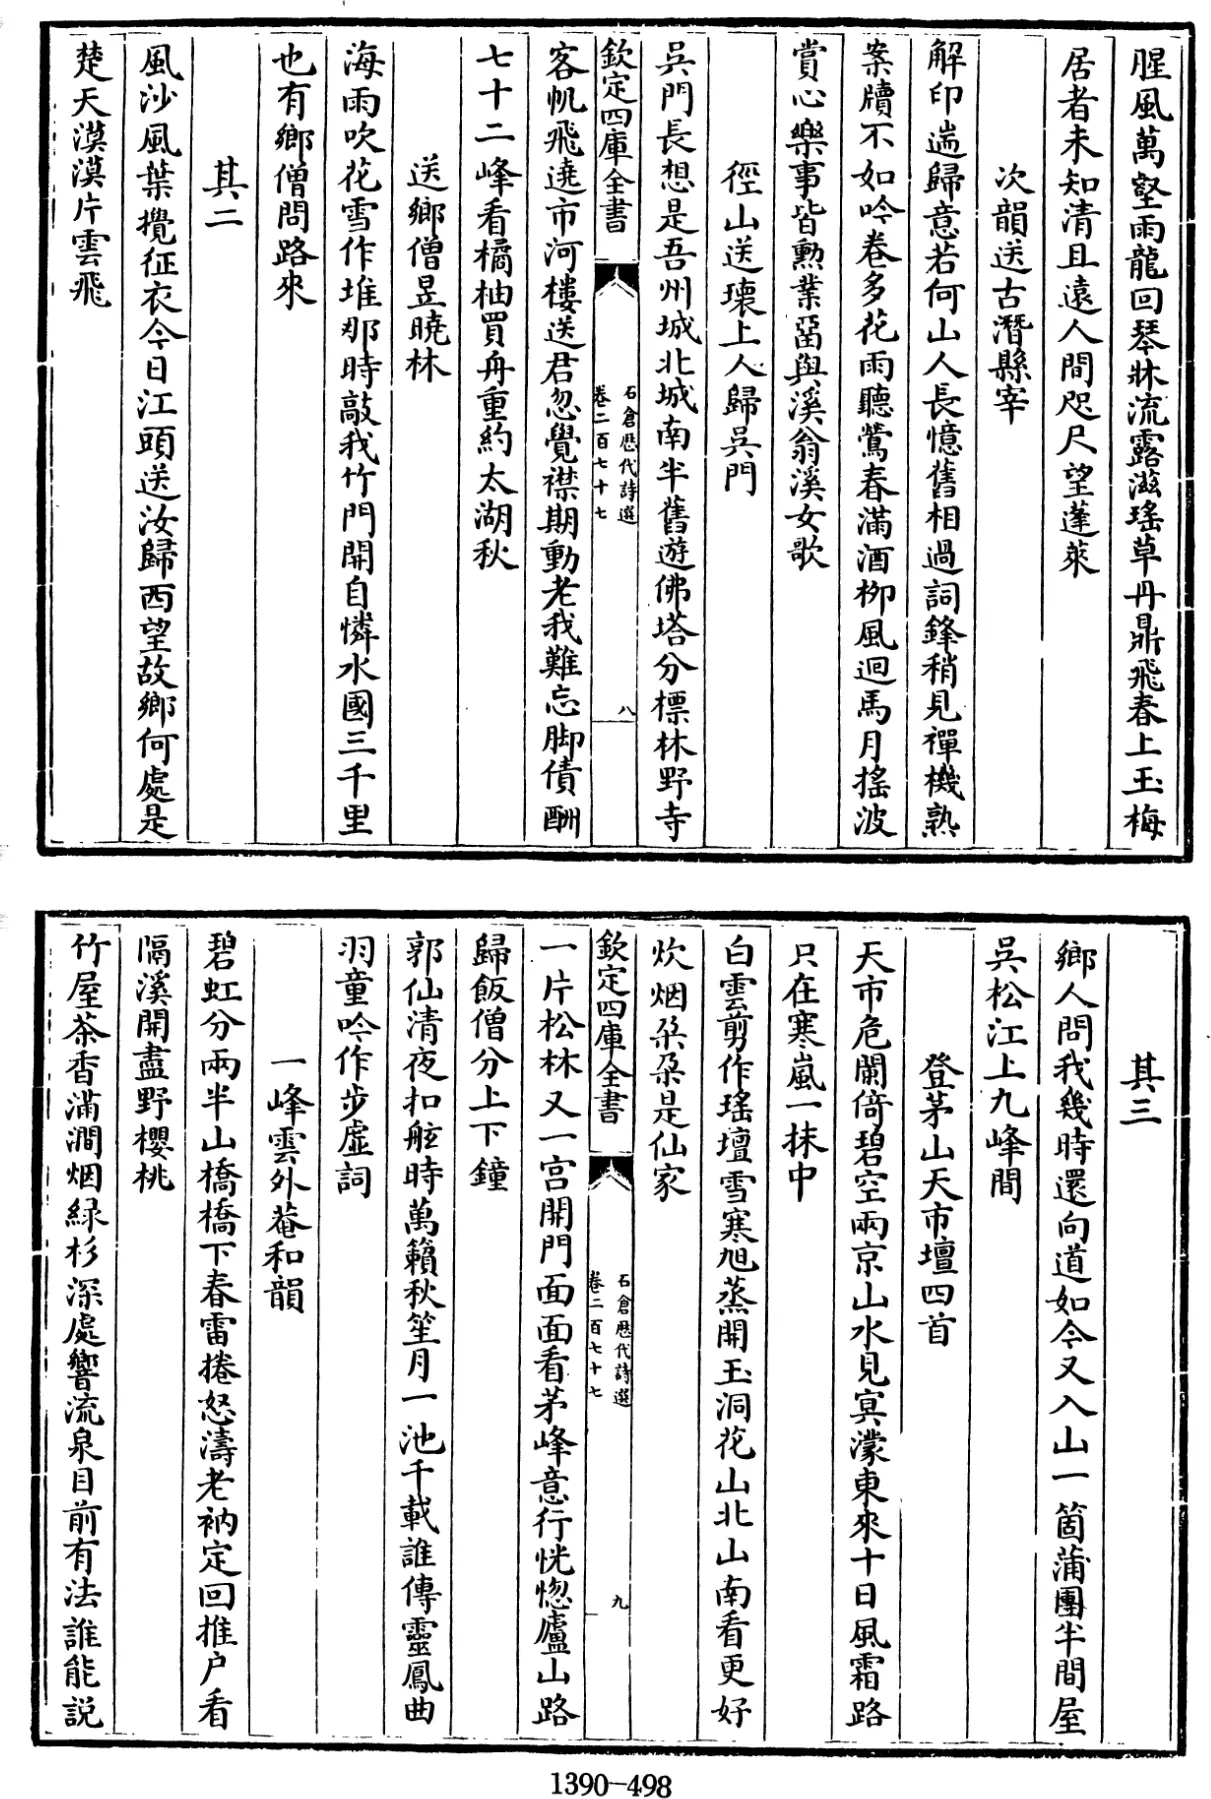 腥風萬壑雨龍回琴牀流露滋瑤草丹鼎飛春上玉梅
居者未知清且遠人間咫尺望蓬萊
次韻送古潛縣宰
解印遄歸意若何山人長憶舊相過詞鋒稍見禪機熟
案牘不如吟卷多花雨聽鶯春滿酒柳風迴馬月搖波
賞心樂事皆勲業留與溪翁溪女歌
徑山送瓌上人歸吳門
吳門長想是吾州城北城南半舊遊佛塔分標林野寺
欽定四庫全書
石倉歴代詩選
卷二百七十七
八
客帆飛遶市河樓送君忽覺襟期動老我難忘脚債酬
七十二峰看橘柚買舟重約太湖秋
送鄉僧昱曉林
海雨吹花雪作堆那時敲我竹門開自憐水國三千里
也有鄉僧問路來
其二
風沙風葉攪征衣今日江頭送汝歸西望故鄉何處是
楚天漠漠片雲飛
其三
鄉人問我幾時還向道如今又入山一箇蒲團半間屋
吳松江上九峰間
登茅山天市壇四首
天市危闌倚碧空兩京山水見冥濛東來十日風霜路
只在寒嵐一抹中
白雲剪作瑤壇雪寒旭蒸開玉洞花山北山南看更好
炊烟朶朶是仙家
欽定四庫全書
石倉歴代詩選
卷二百七十七
九
一片松林又一宫開門面面看茅峰意行恍惚廬山路
歸飯僧分上下鐘
郭仙清夜扣舷時萬籟秋笙月一池千載誰傳靈鳳曲
羽童吟作步虛詞
一峰雲外菴和韻
碧虹分兩半山橋橋下春雷捲怒濤老衲定回推户看
隔溪開盡野櫻桃
竹屋茶香滿澗烟緑杉深處響流泉目前有法誰能説
1390-498